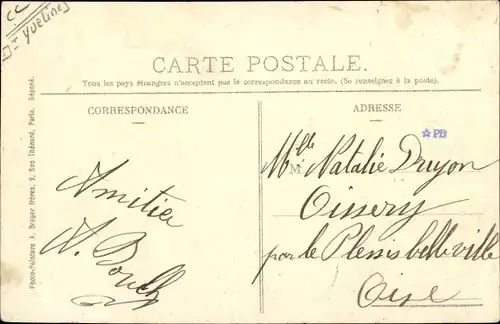 CC
Yvelines
CARTE POSTALE.
Tous les pays étrangers n'acceptent pas la correspondance au recto. (Se renseigner à la poste).
CORRESPONDANCE
ADRESSE
PB
Amitiés
A.
M
Mlle Natalie Druyon
Oissery
par le Plessis belleville
Oise
Photo-Peinture A. Breger frères, 9, Rue Thénard, Paris. Déposé.